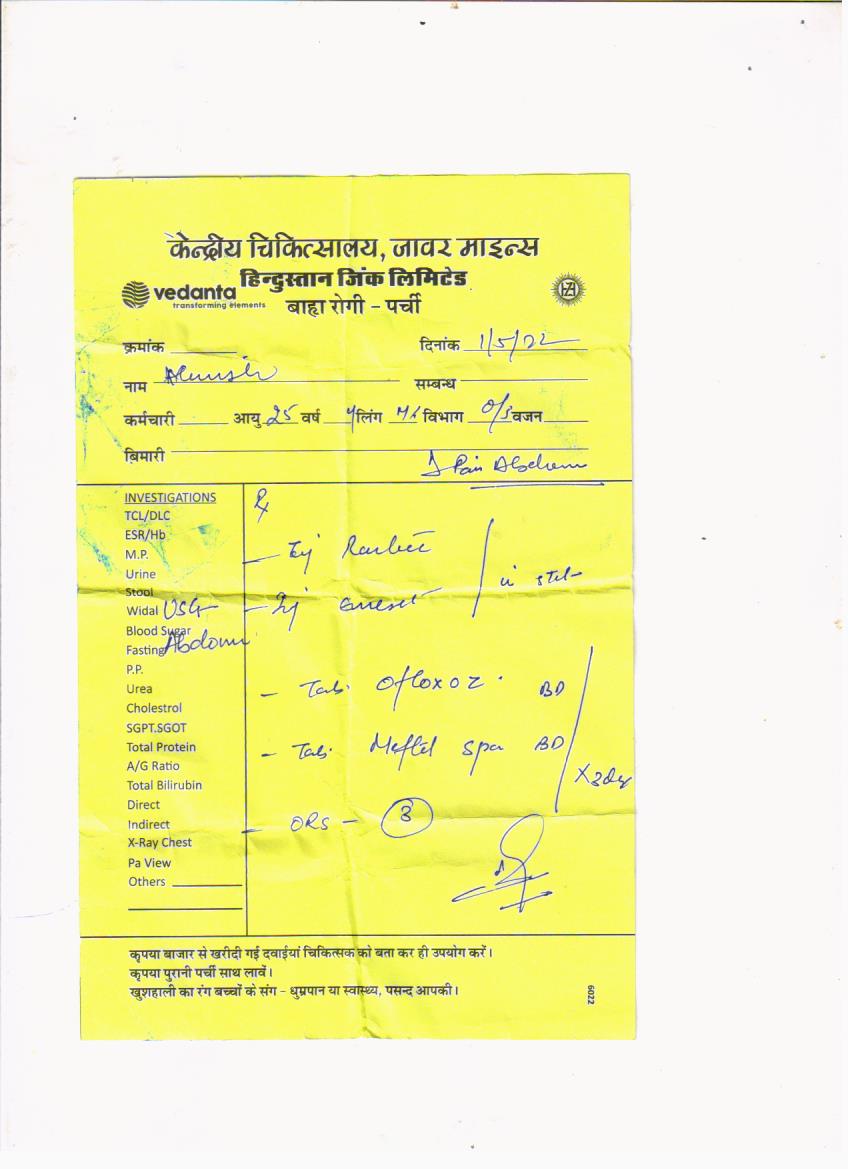 केन्द्रीय चिकित्सालय, जावर माइन्स
हिन्दुस्तान जिंक लिमिटेड
vedanta
transforming elements
बाह्य रोगी - पर्ची
क्रमांक दिनांक 1/5/22
नाम सम्बन्ध
कर्मचारी आयु 25 वर्ष y लिंग विभाग O/S वजन
बिमारी
Pain Abdomen
INVESTIGATIONS
TCL/DLC
ESR/Hb
M.P. Inj
Urine stat
Stool
Widal USG Inj
Blood Sugar
Fasting Abdomen
P.P.
Urea - Tab. Ofloxoz. BD
Cholestrol
SGPT.SGOT
Total Protein - Tab. Meftal Spa BD
A/G Ratio X 3day
Total Bilirubin
Direct
Indirect - ORS - 3
X-Ray Chest
Pa View
Others
कृपया बाजार से खरीदी गई दवाईयां चिकित्सक को बता कर ही उपयोग करें।
कृपया पुरानी पर्ची साथ लावें।
खुशहाली का रंग बच्चों के संग - धुम्रपान या स्वास्थ्य, पसन्द आपकी।
6022